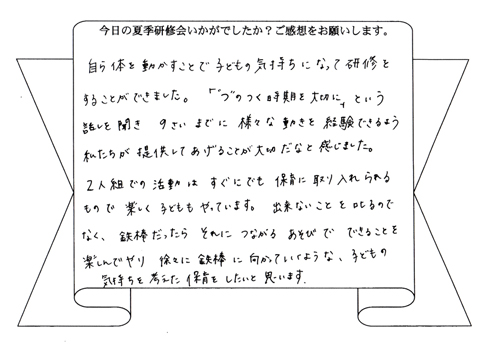 今日の夏季研修会いかがでしたか？ご感想をお願いします。
自ら体を動かすことで子どもの気持ちになって研修を
することができました。「"つ"のつく時期を大切に」という
話しを聞き 9さいまでに 様々な動きを 経験できるよう
私たちが 提供してあげることが大切だなと 感じました。
2人組での活動は すぐにでも 保育に取り入れられる
もので 楽しく 子どももやっています。 出来ないことを叱るので
なく、鉄棒だったら それに つながる あそびで できることを
楽しんでやり 徐々に 鉄棒に 向かっていくような、子どもの
気持ちを考えた保育をしたいと 思います。